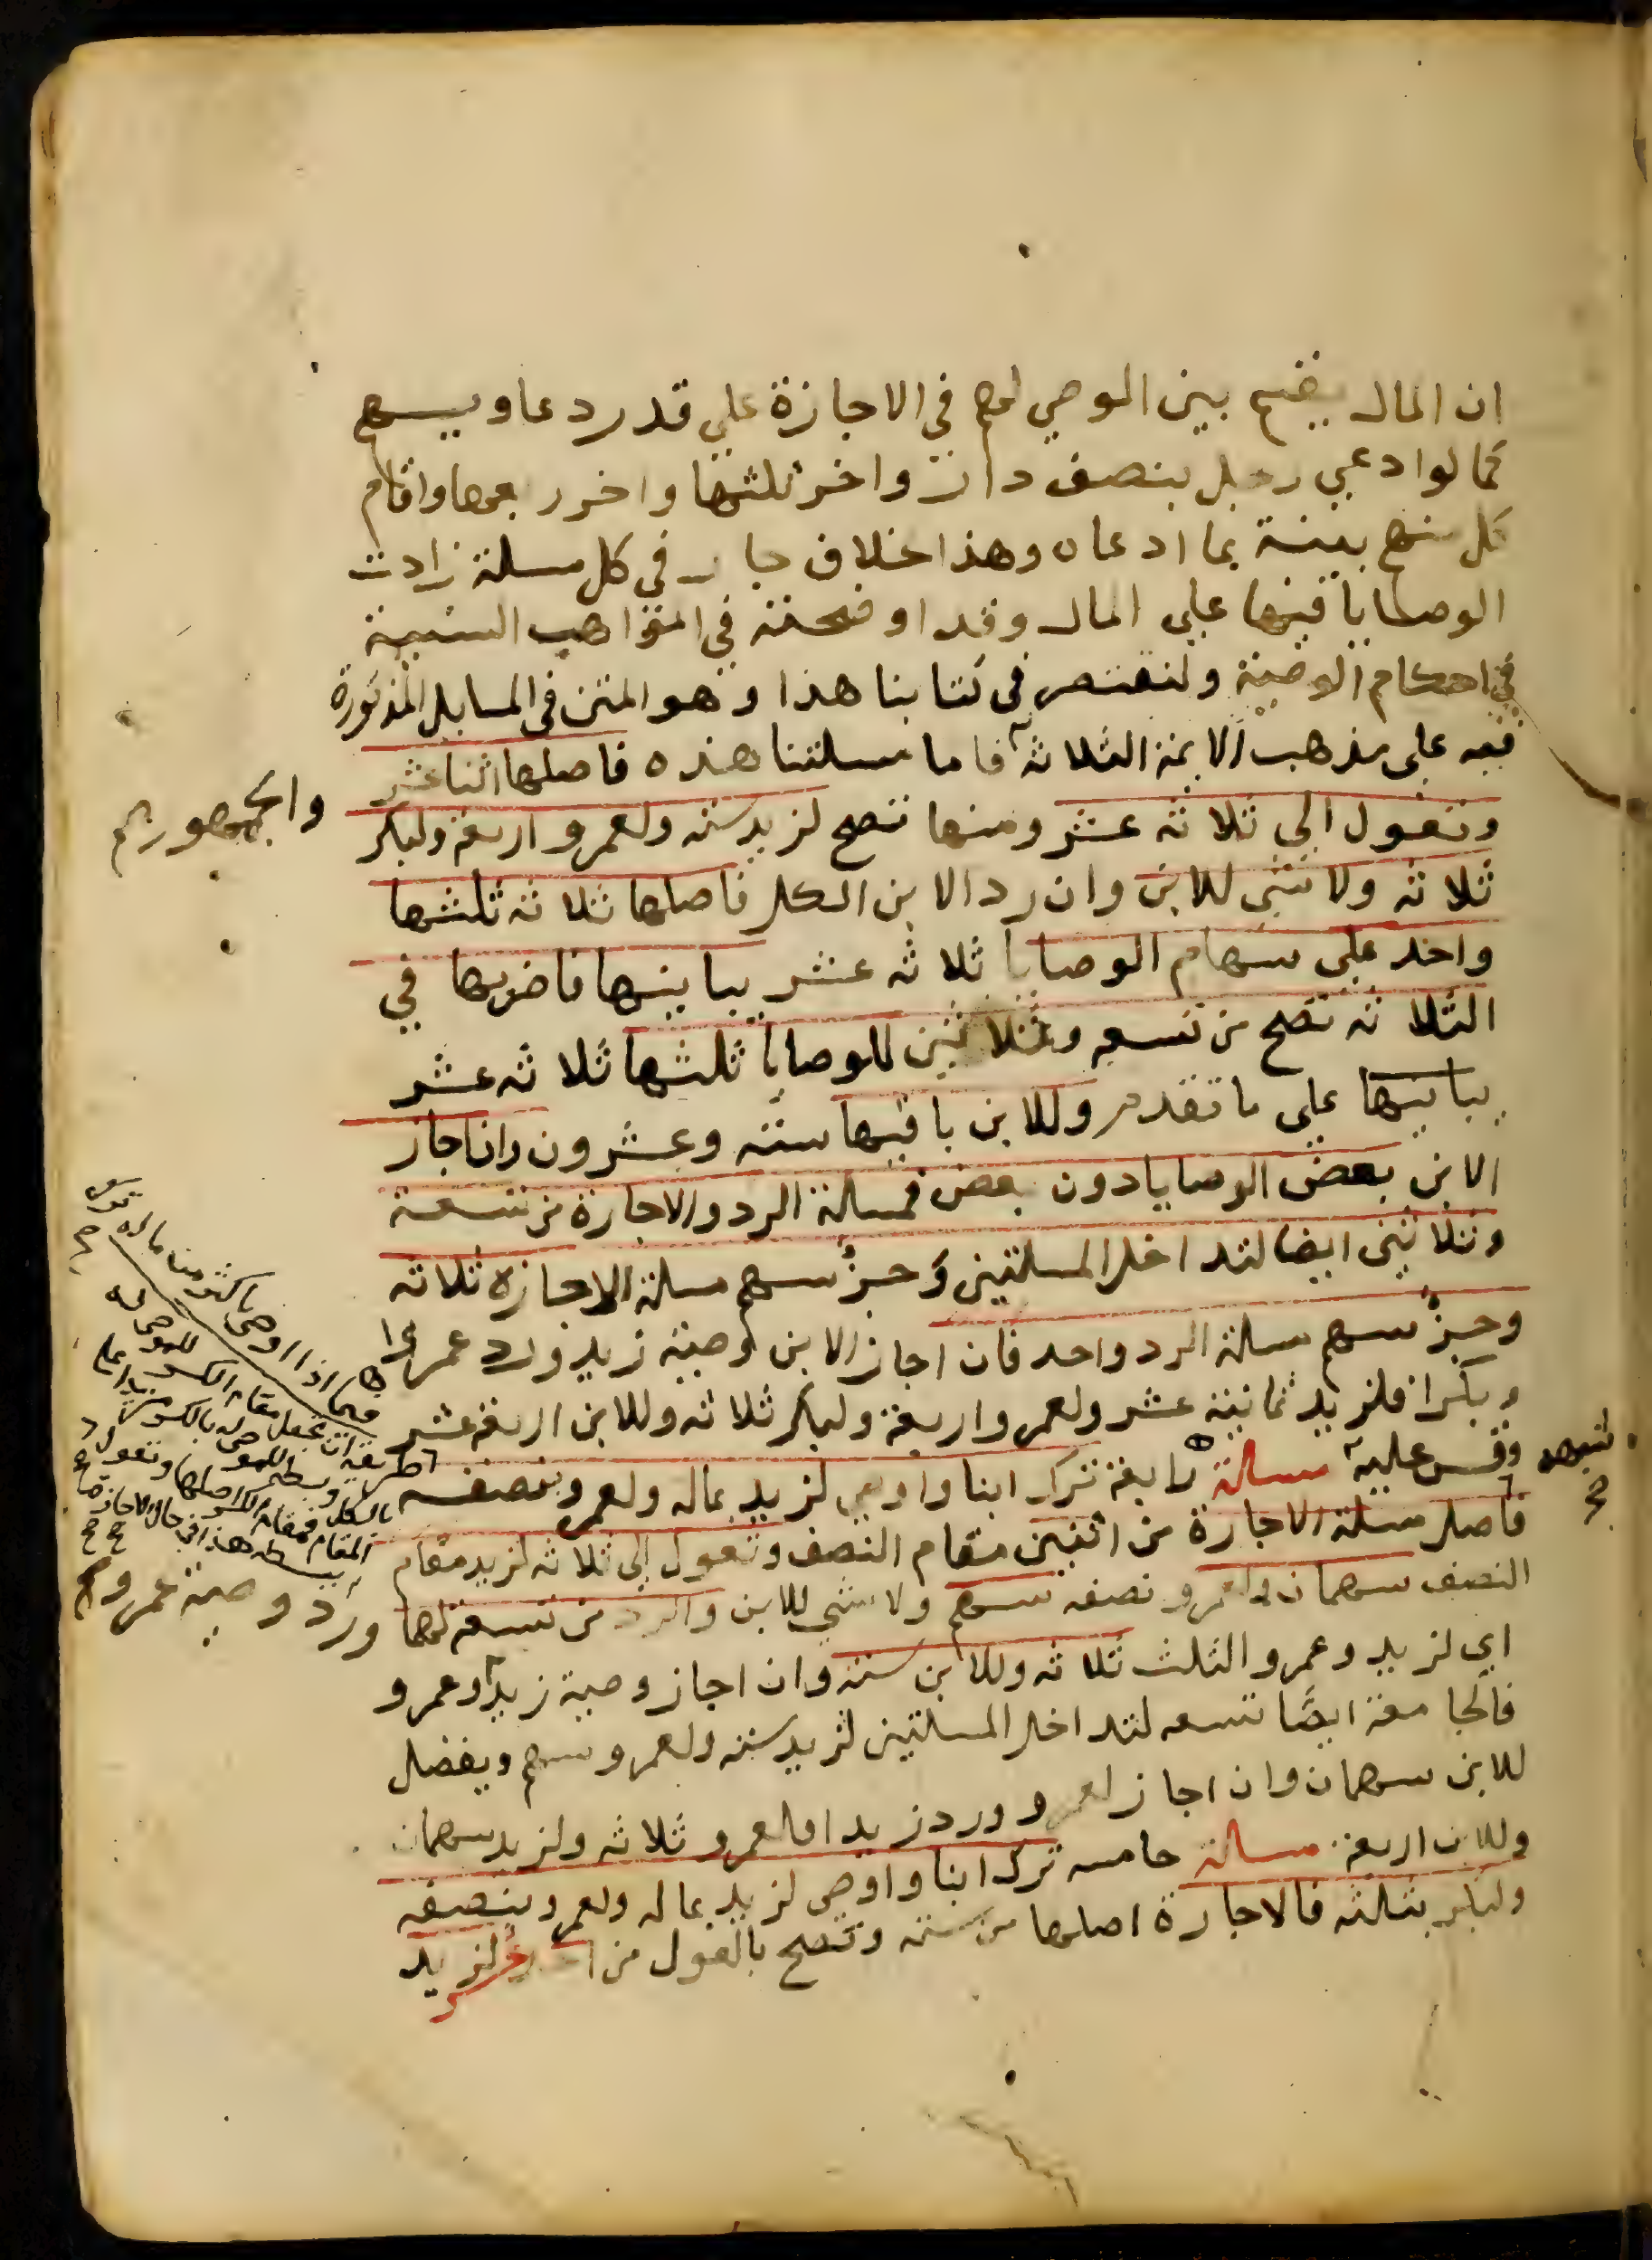 ان المال يقسم بين الموصي لهم في الاجازة علي قدر دعاويهم
كما لو ادعي رجل بنصف دار واخر ثلثها واخر ربعها واقام
كل منهم بينة بما ادعاه وهذا خلاف جار في كل مسلة زادت
الوصايا فيها علي المال وقد اوضحته في المواهب السنية
في احكام الوصية ولنقتصر في كتابنا هذا وهو المتن في المسايل المذكورة
فيه علي مذهب الايمة الثلاثة فاما مسلتنا هذه فاصلها اثنا عشر
والجمهور
وتعول الي ثلاثه عشر ومنها تصح لزيد سته ولعمرو اربعة ولبكر
ثلاثه ولا شي للابن وان رد الابن الكل فاصلها ثلاثه ثلثها
واحد علي سهام الوصايا ثلاثه عشر يباينها فاضربها في
الثلاثه تصح من تسعه وثلاثين للوصايا ثلثها ثلاثه عشر
يباينها علي ما تقدم وللابن باقيها سته وعشرون وان اجاز
الابن بعض الوصايا دون بعض فمسالة الرد والاجازة من تسعة
وثلاثين ايضا لتداخل المسلتين وجزؤ سهم مسلة الاجازه ثلاثه
وجزؤ سهم مسلة الرد واحد فان اجاز الابن وصية زيد ورد عمرا
وبكرا فلزيد ثمانية عشر ولعمرو اربعة ولبكر ثلاثه وللابن اربعة عشر
وقس عليه مسالة رابعة ترك ابنا واوصي لزيد بماله ولعمرو بنصفه
فاصل مسلة الاجازة من اثنين مقام النصف وتعول الي ثلاثه لزيد مقام
النصف سهمان ولعمرو نصفه سهم ولا شي للابن والرد من تسعة لهما
اي لزيد وعمرو الثلث ثلاثه وللابن سته وان اجاز وصية زيد وعمرو
ورد وصية عمرو
فالجامعة ايضا تسعه لتداخل المسلتين لزيد سته ولعمرو سهم ويفضل
للابن سهمان وان اجاز لعمرو ورد زيدا فلعمرو ثلاثه ولزيد سهمان
وللابن اربعة مسالة خامسه ترك ابنا واوصي لزيد بماله ولعمرو بنصفه
ولبكر بثلثه فالاجازة اصلها من سته وتصح بالعول من احد عشر لزيد
فيما اذا اوصي باكثر من ماله
طريقة ان تجعل مقام الكسر للموصي له
بالكل وبسطه للموصي له بالكسر
فمقام الكسر اصلها وتعول